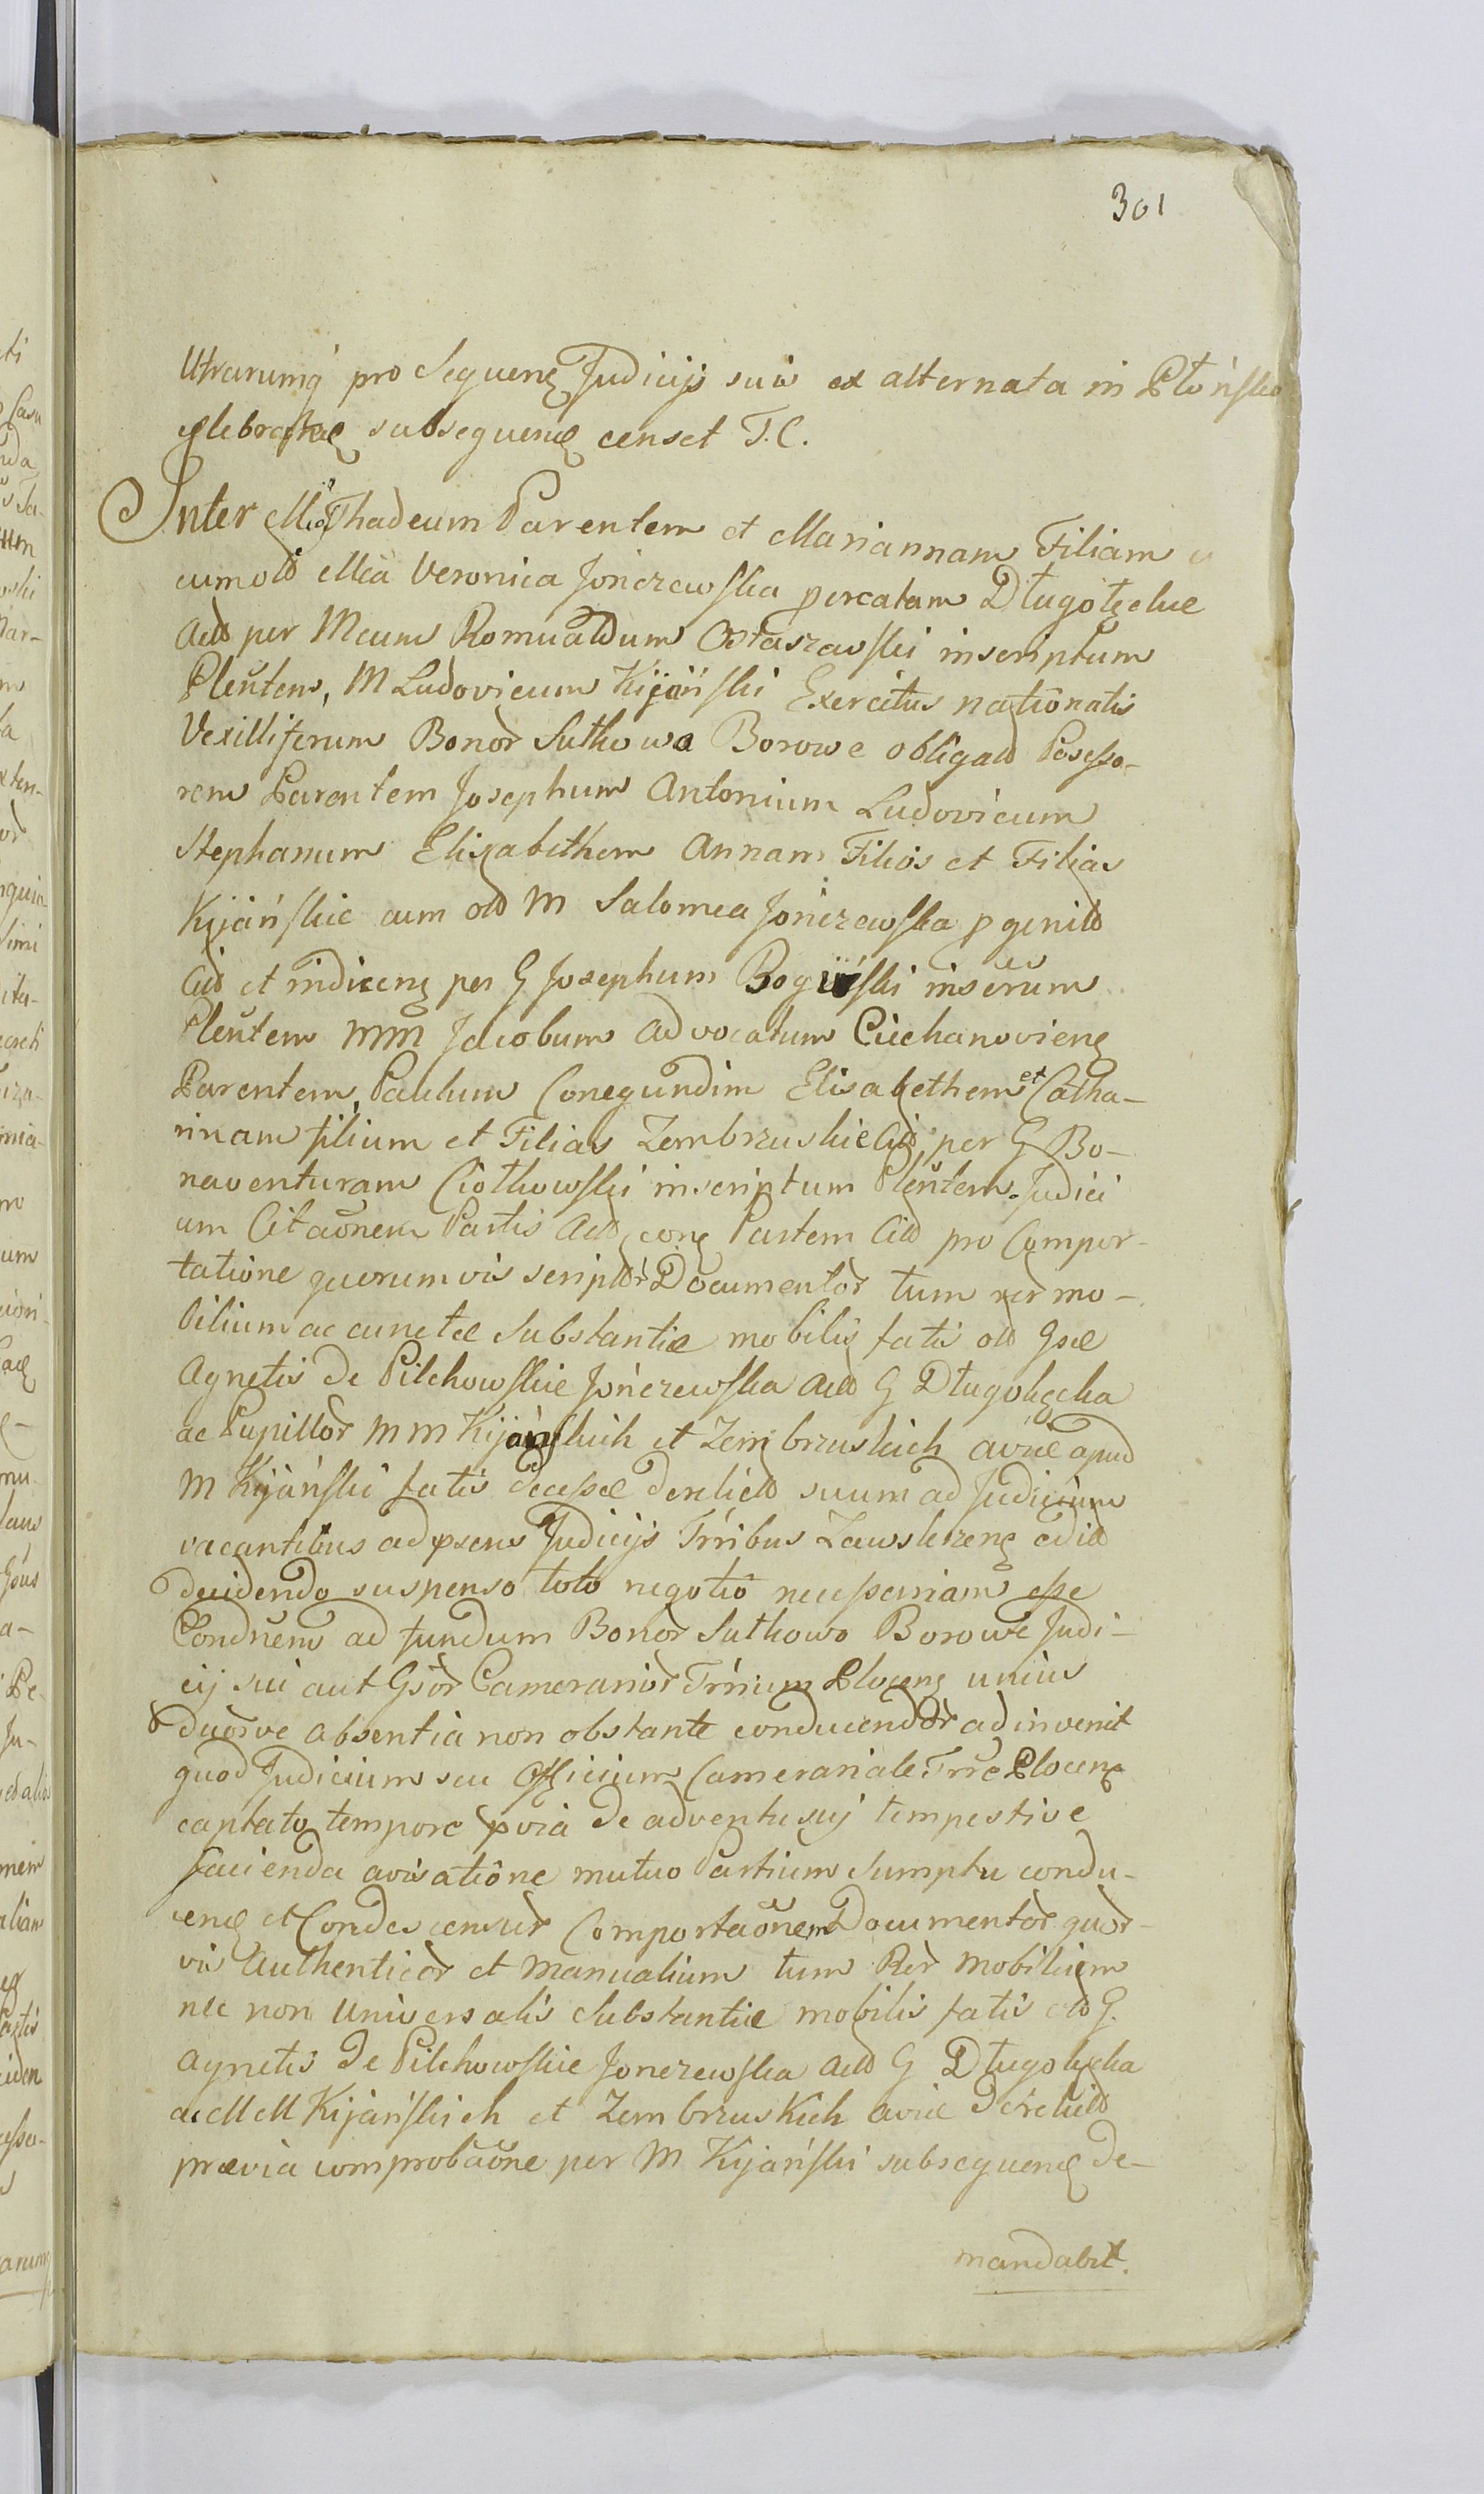 301
Utrarumq̃ pro Sequenę Judicijs suis ex alternata in Płońsko
celebrandæ subsequenę censet T.C.
Inter Mcos Thadeum Parentem et Mariannam Filiam
cum old Mcã Veronica Jonczewska percatam Długołęckie
Actd per Mcum Romualdum Ostaszewski inscriptum
Plen̄tem, M Ludovicum Kijański Exercitus nationalis
Vexilliferum Bonor̀ Sutkowa Borowe obligatd Possesso-
rem Parentem Josephum Antonium Ludovicum
Stephanum Elizabetham Annam Filios et Filias
Kijańskie cum old M Salomea Jonczewska pgenitd
Citd et indicenę per G Josephum Bogüski inserum
Plen̄tem MM Jacobum Advocatum Ciechanovienę
Parentem, Paulum Conegundim Elisabethem et Catha-
rinam filium et Filias Zembrzuskie Citd per G Bo-
naventuram Ciołkowski inscriptum Plen̄tem. Judici
um Citãonem Partis Actd conę Partem Citd pro Compor-
tatione quorumvis scriptor̀ Documentor̀ tum rer̀ mo-
bilium ac cunctæ Substantiæ mobilis fatis old Gsæ
Agnetis de Pilchowskie Jończewska Actd G Długołęcka
ac Pupillor̀ MM Kijańskich et Zembrzuskich aviæ apud
M Kijański fatis decessæ derelictd suum ad Judicium
vacantibus ad pñsens Judicijs Trribus Zawskrzenę edictd
decidendo suspenso toto negotio necessariam esse
Condn̄em ad fundum Bonor̀ Sutkowo Borowe Judi-
cij sui aut Gsor̀ Camerarior̀ Trrium Plocenę unius
duorve absentia non obstante conducendor̀ adinvenit
quod Judicium seu Officium Camerariale Trræ Plocenę
captato tempore pvia de adventu suj tempestive
facienda avisatione mutuo Partium Sumptu condu-
cenę et Condescensur̀ Comportãonem Documentor̀ quor̀-
vis Authenticor̀ et Manualium tum Rer̀ Mobilium
nec non Universalis Substantiæ mobilis fatis old G.
Agnetis de Pilchowskie Jonczewska Actd G Długołęcka
ac MM Kijańskich et Zembrzuskich aviæ derelictd
prævia comprobãone per M Kijański subsequenę de-
mandabit.